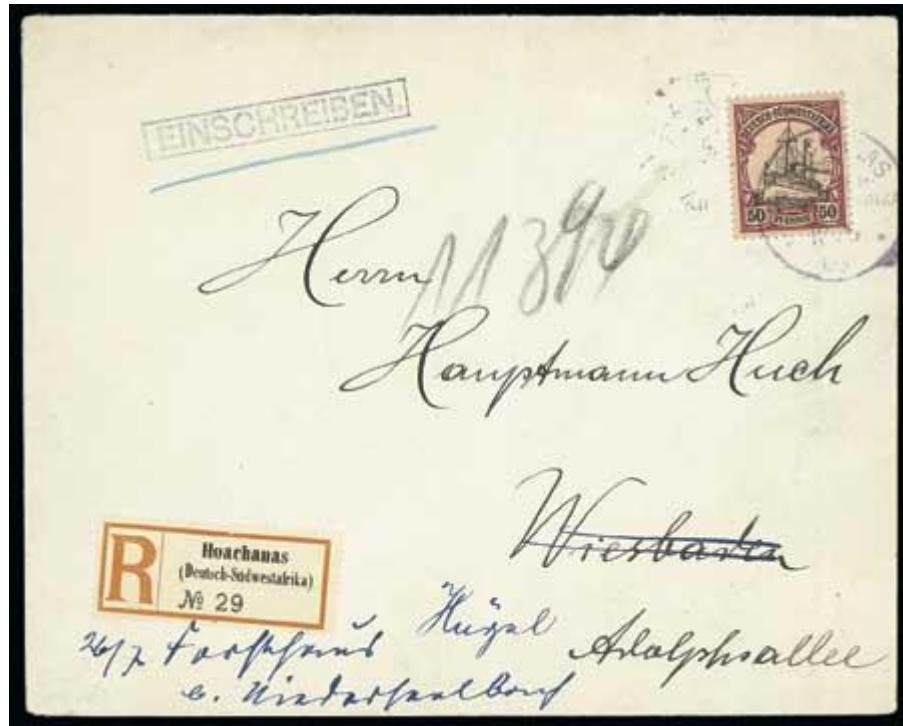 EINSCHREIBEN.
DEUTSCH-SÜDWESTAFRIKA
50 PFENNIG 50
Herrn
11390
Hauptmann Huch
Wiesbaden
R
Hoachanas
(Deutsch-Südwestafrika)
№ 29
Adolphsallee
26/7 Forsthaus Hügel
b. Niederseelbach